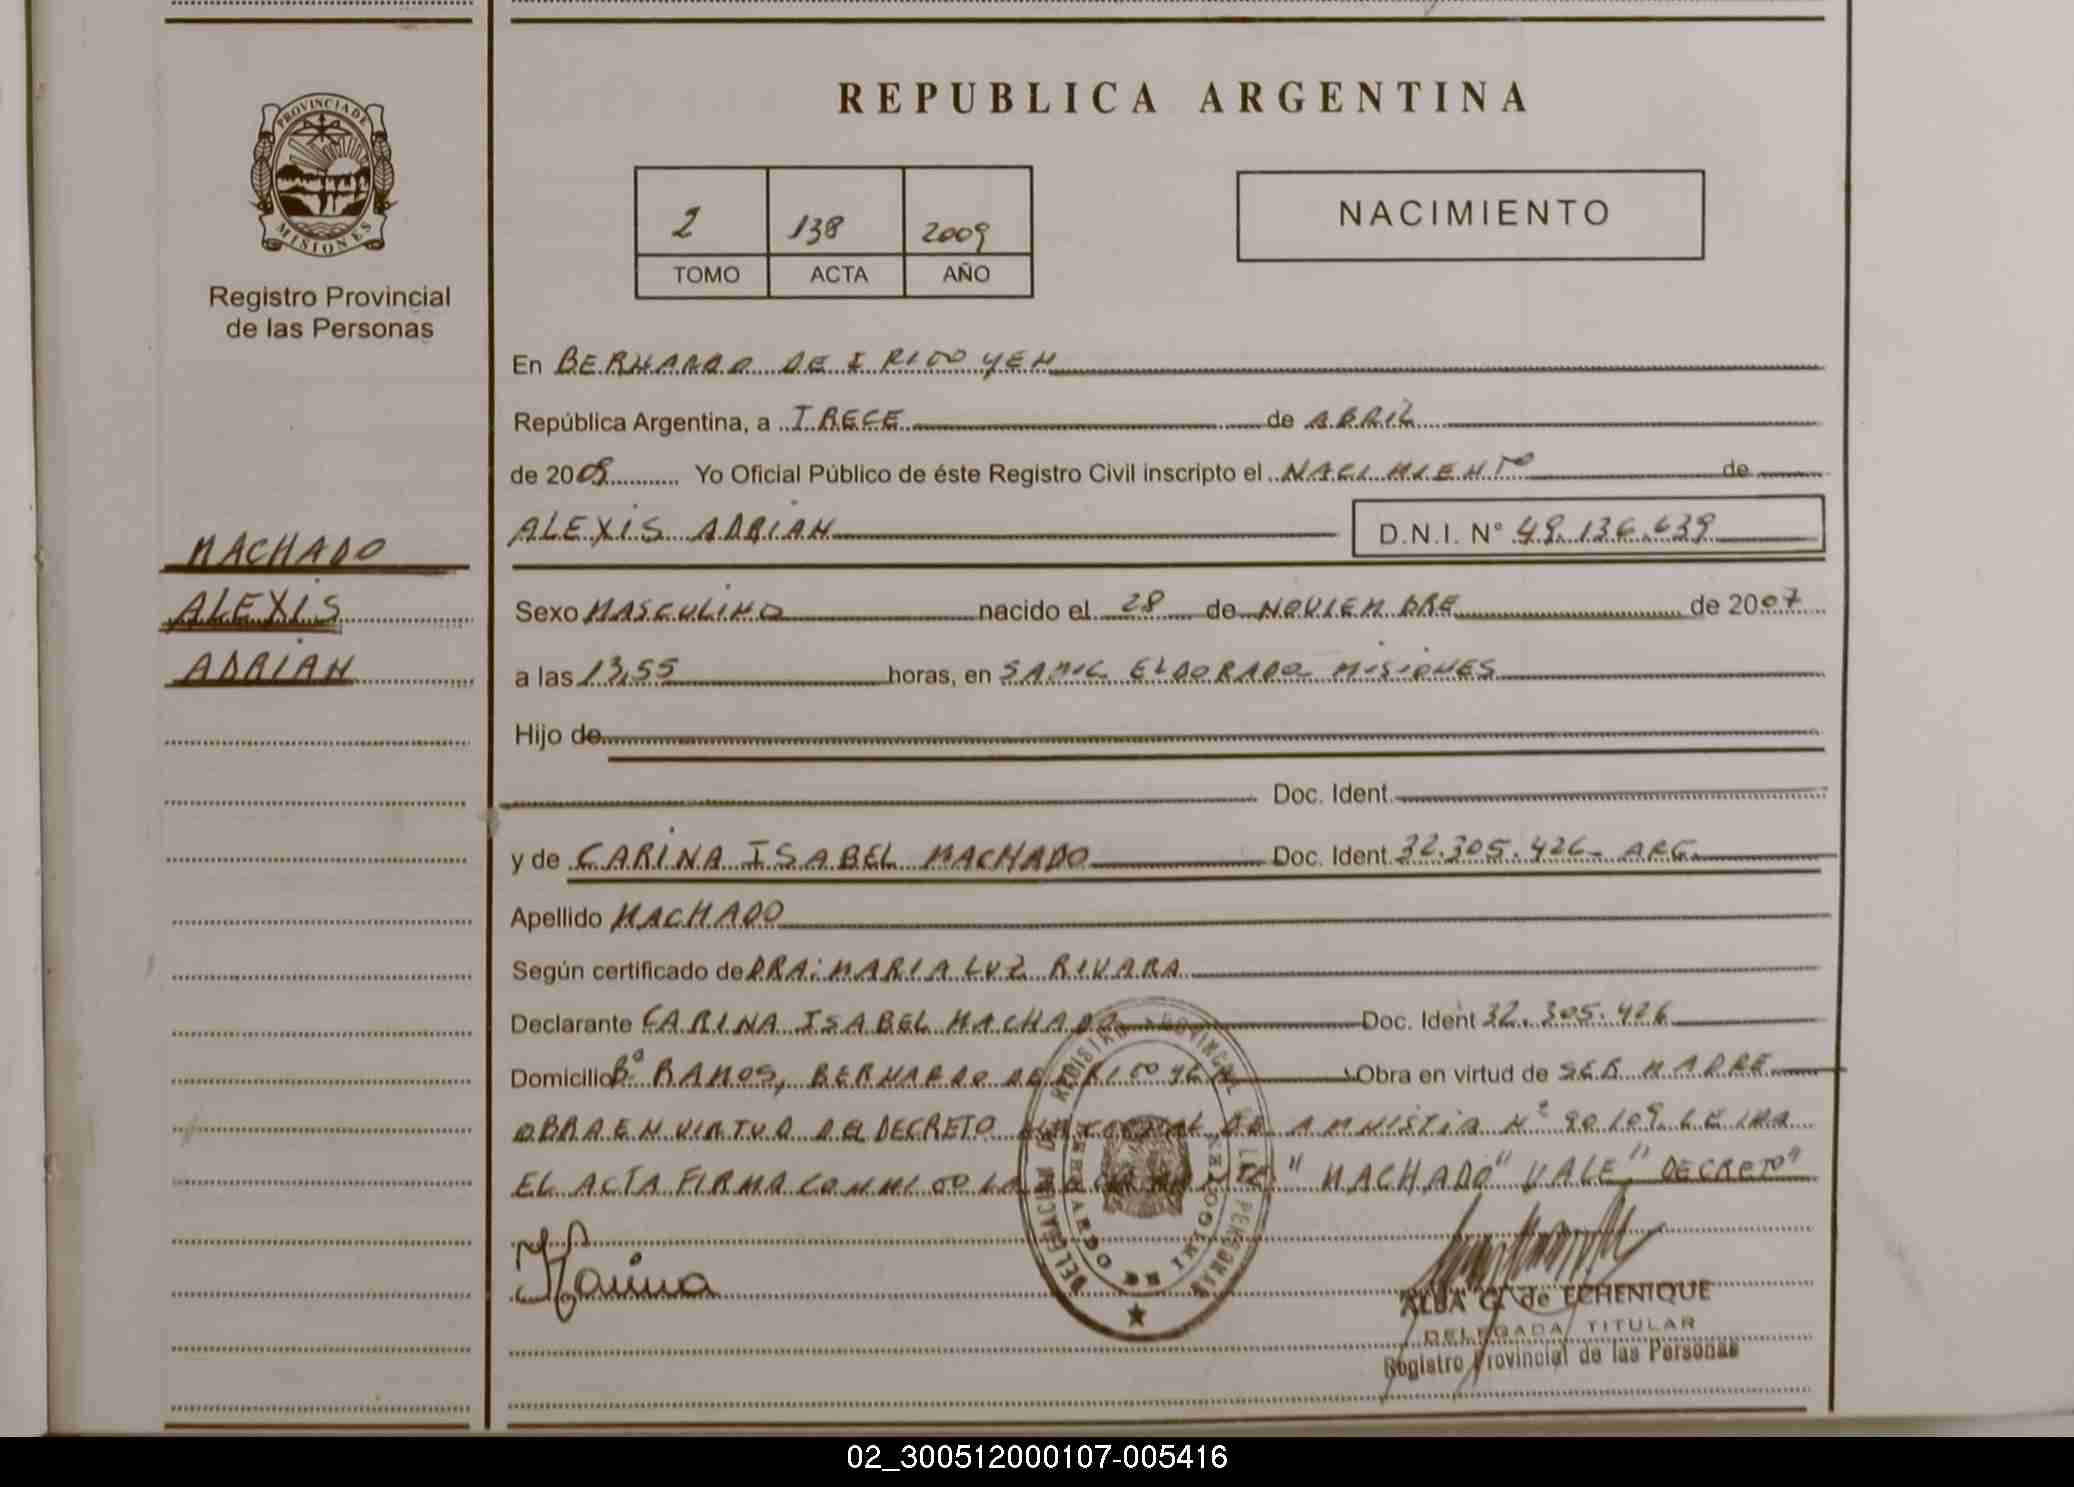 REPUBLICA ARGENTINA
PROVINCIA DE MISIONES
Registro Provincial
de las Personas
2 138 2009
TOMO ACTA AÑO
NACIMIENTO
En BERNARDO DE IRIGOYEN
República Argentina, a TRECE de ABRIL
de 2009 Yo Oficial Público de éste Registro Civil inscripto el NACIMIENTO de
ALEXIS ADRIAN D.N.I. N° 49.136.639
MACHADO
ALEXIS
ADRIAN
Sexo MASCULINO nacido el 28 de NOVIEMBRE de 2007
a las 13,55 horas, en SAMIC ELDORADO MISIONES
Hijo de
Doc. Ident.
y de CARINA ISABEL MACHADO Doc. Ident. 32.305.426- ARG.
Apellido MACHADO
Según certificado de DRA: MARIA LUZ RIVARA
Declarante CARINA ISABEL MACHADO Doc. Ident 32.305.426
Domicilio Bº RAMOS, BERNARDO DE IRIGOYEN Obra en virtud de SER MADRE
OBRA EN VIRTUD DEL DECRETO DE AMNISTIA Nº 90/09. LEIDA
EL ACTA FIRMA CONMIGO LA "MACHADO" VALE "DECRETO"
Karina
REGISTRO PROVINCIAL DE LAS PERSONAS
DELEGACION
BERNARDO DE IRIGOYEN
ALBA G. de ECHENIQUE
DELEGADA TITULAR
Registro Provincial de las Personas
02_300512000107-005416